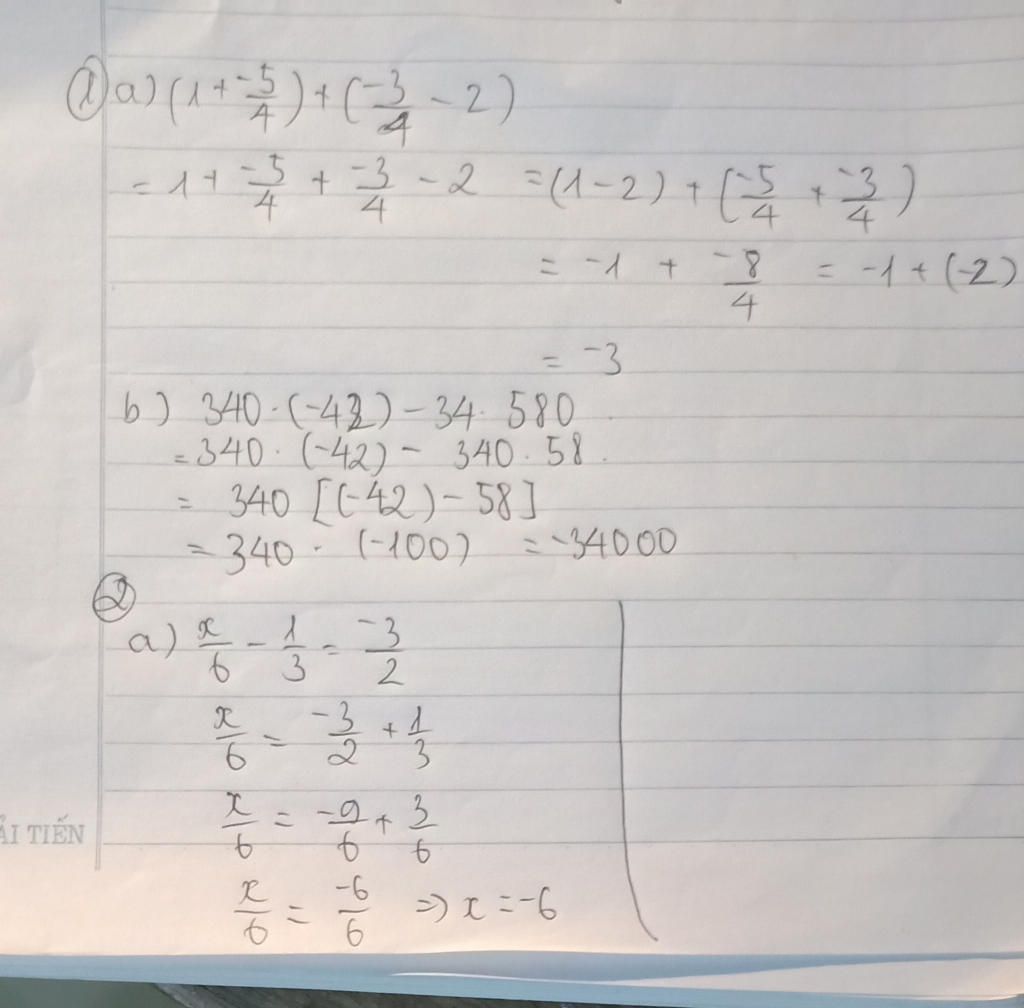 ① a) (1 + -5/4) + (-3/4 - 2)
= 1 + -5/4 + -3/4 - 2 = (1 - 2) + (-5/4 + -3/4)
= -1 + -8/4 = -1 + (-2)
= -3
b) 340 . (-42) - 34 . 580
= 340 . (-42) - 340 . 58
= 340 [(-42) - 58]
= 340 . (-100) = -34000
②
a) x/6 - 1/3 = -3/2
x/6 = -3/2 + 1/3
x/6 = -9/6 + 3/6
ẢI TIẾN
x/6 = -6/6 => x = -6